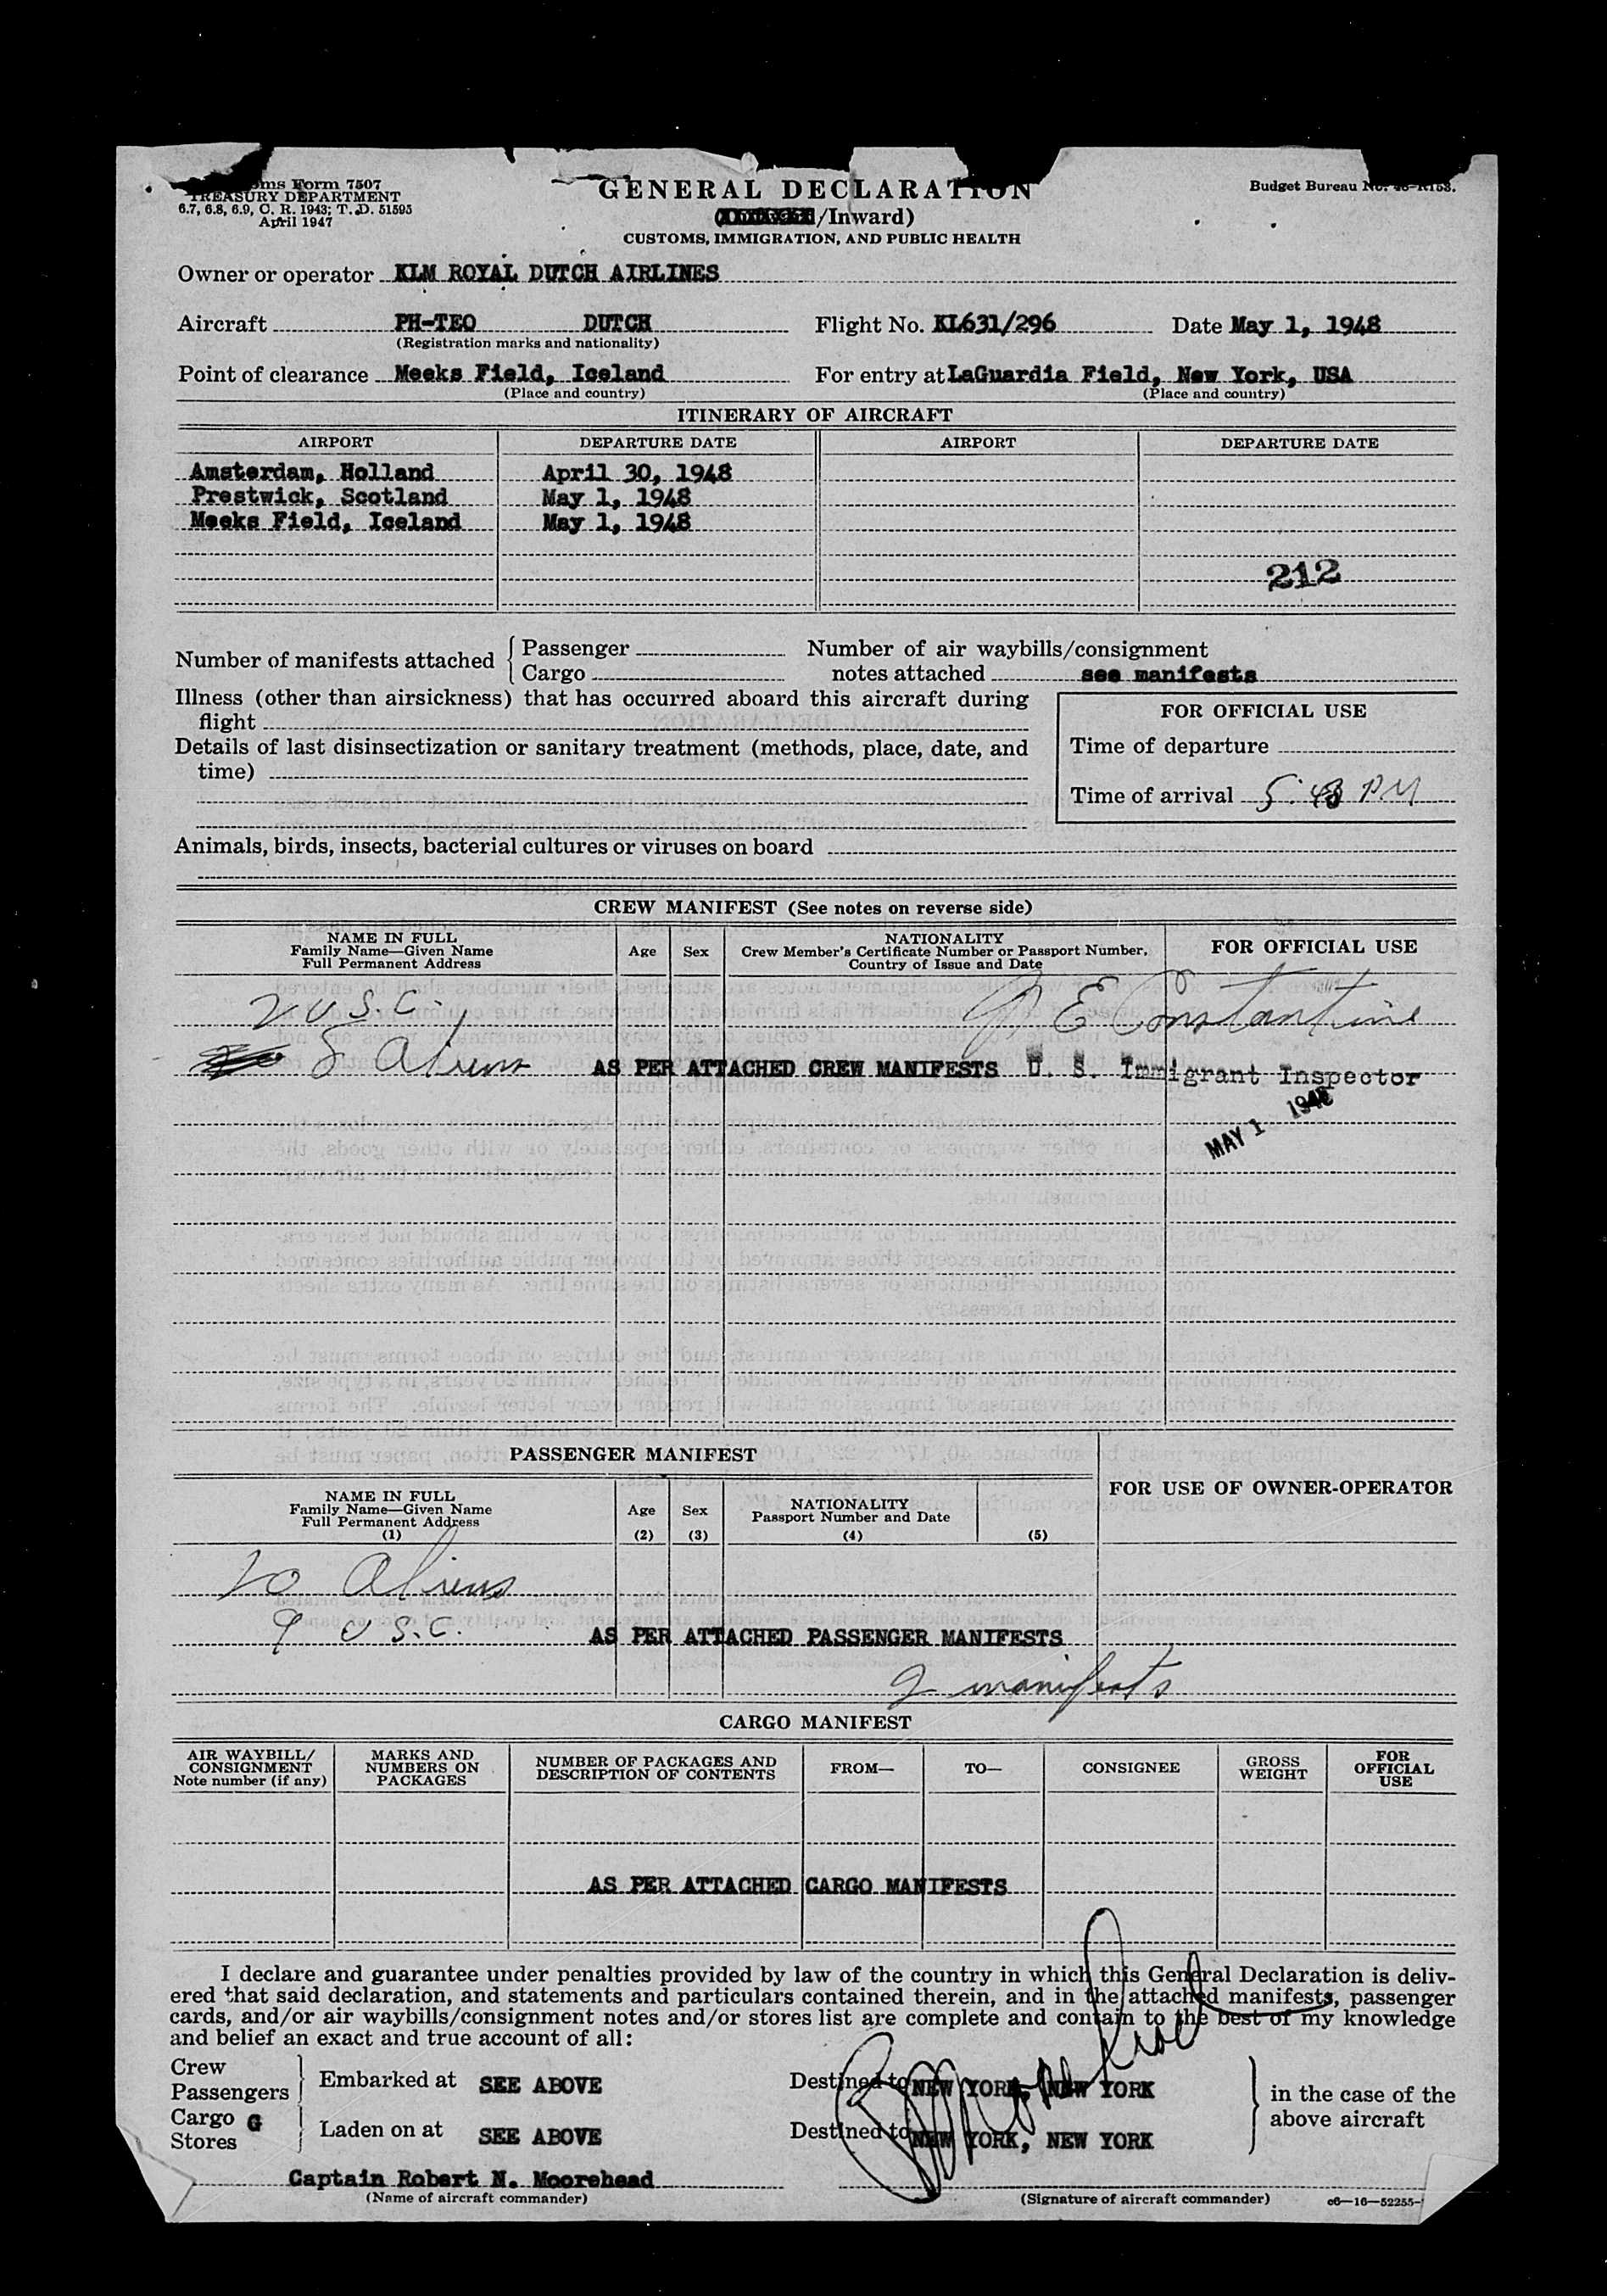 ms Form 7507
TREASURY DEPARTMENT
6.7, 6.8, 6.9, C. R. 1943; T. D. 51595
April 1947
GENERAL DECLARATION
/Inward)
CUSTOMS, IMMIGRATION, AND PUBLIC HEALTH
Budget Bureau No. 48-R153.
Owner or operator KLM ROYAL DUTCH AIRLINES
Aircraft PH-TEO DUTCH Flight No. KL631/296 Date May 1, 1948
(Registration marks and nationality)
Point of clearance Meeks Field, Iceland For entry at LaGuardia Field, New York, USA
(Place and country) (Place and country)
ITINERARY OF AIRCRAFT
AIRPORT DEPARTURE DATE AIRPORT DEPARTURE DATE
Amsterdam, Holland April 30, 1948
Prestwick, Scotland May 1, 1948
Meeks Field, Iceland May 1, 1948
212
Number of manifests attached { Passenger
Cargo
Number of air waybills/consignment
notes attached see manifests
Illness (other than airsickness) that has occurred aboard this aircraft during
flight
Details of last disinsectization or sanitary treatment (methods, place, date, and
time)
FOR OFFICIAL USE
Time of departure
Time of arrival 5:48 PM
Animals, birds, insects, bacterial cultures or viruses on board
CREW MANIFEST (See notes on reverse side)
NAME IN FULL
Family Name—Given Name
Full Permanent Address
Age
Sex
NATIONALITY
Crew Member's Certificate Number or Passport Number,
Country of Issue and Date
FOR OFFICIAL USE
2 U.S.C. E Constantine
8 Aliens AS PER ATTACHED CREW MANIFESTS U. S. Immigrant Inspector
MAY 1 1948
PASSENGER MANIFEST
FOR USE OF OWNER-OPERATOR
NAME IN FULL
Family Name—Given Name
Full Permanent Address
(1)
Age
(2)
Sex
(3)
NATIONALITY
Passport Number and Date
(4)
(5)
20 Aliens
9 U.S.C. AS PER ATTACHED PASSENGER MANIFESTS
2 manifests
CARGO MANIFEST
AIR WAYBILL/
CONSIGNMENT
Note number (if any)
MARKS AND
NUMBERS ON
PACKAGES
NUMBER OF PACKAGES AND
DESCRIPTION OF CONTENTS
FROM—
TO—
CONSIGNEE
GROSS
WEIGHT
FOR
OFFICIAL
USE
AS PER ATTACHED CARGO MANIFESTS
I declare and guarantee under penalties provided by law of the country in which this General Declaration is deliv-
ered that said declaration, and statements and particulars contained therein, and in the attached manifests, passenger
cards, and/or air waybills/consignment notes and/or stores list are complete and contain to the best of my knowledge
and belief an exact and true account of all:
Crew
Passengers } Embarked at SEE ABOVE Destined to NEW YORK, NEW YORK
Cargo G
Stores } Laden on at SEE ABOVE Destined to NEW YORK, NEW YORK
in the case of the
above aircraft
Captain Robert N. Moorehead
(Name of aircraft commander) (Signature of aircraft commander) c6—16—52255-